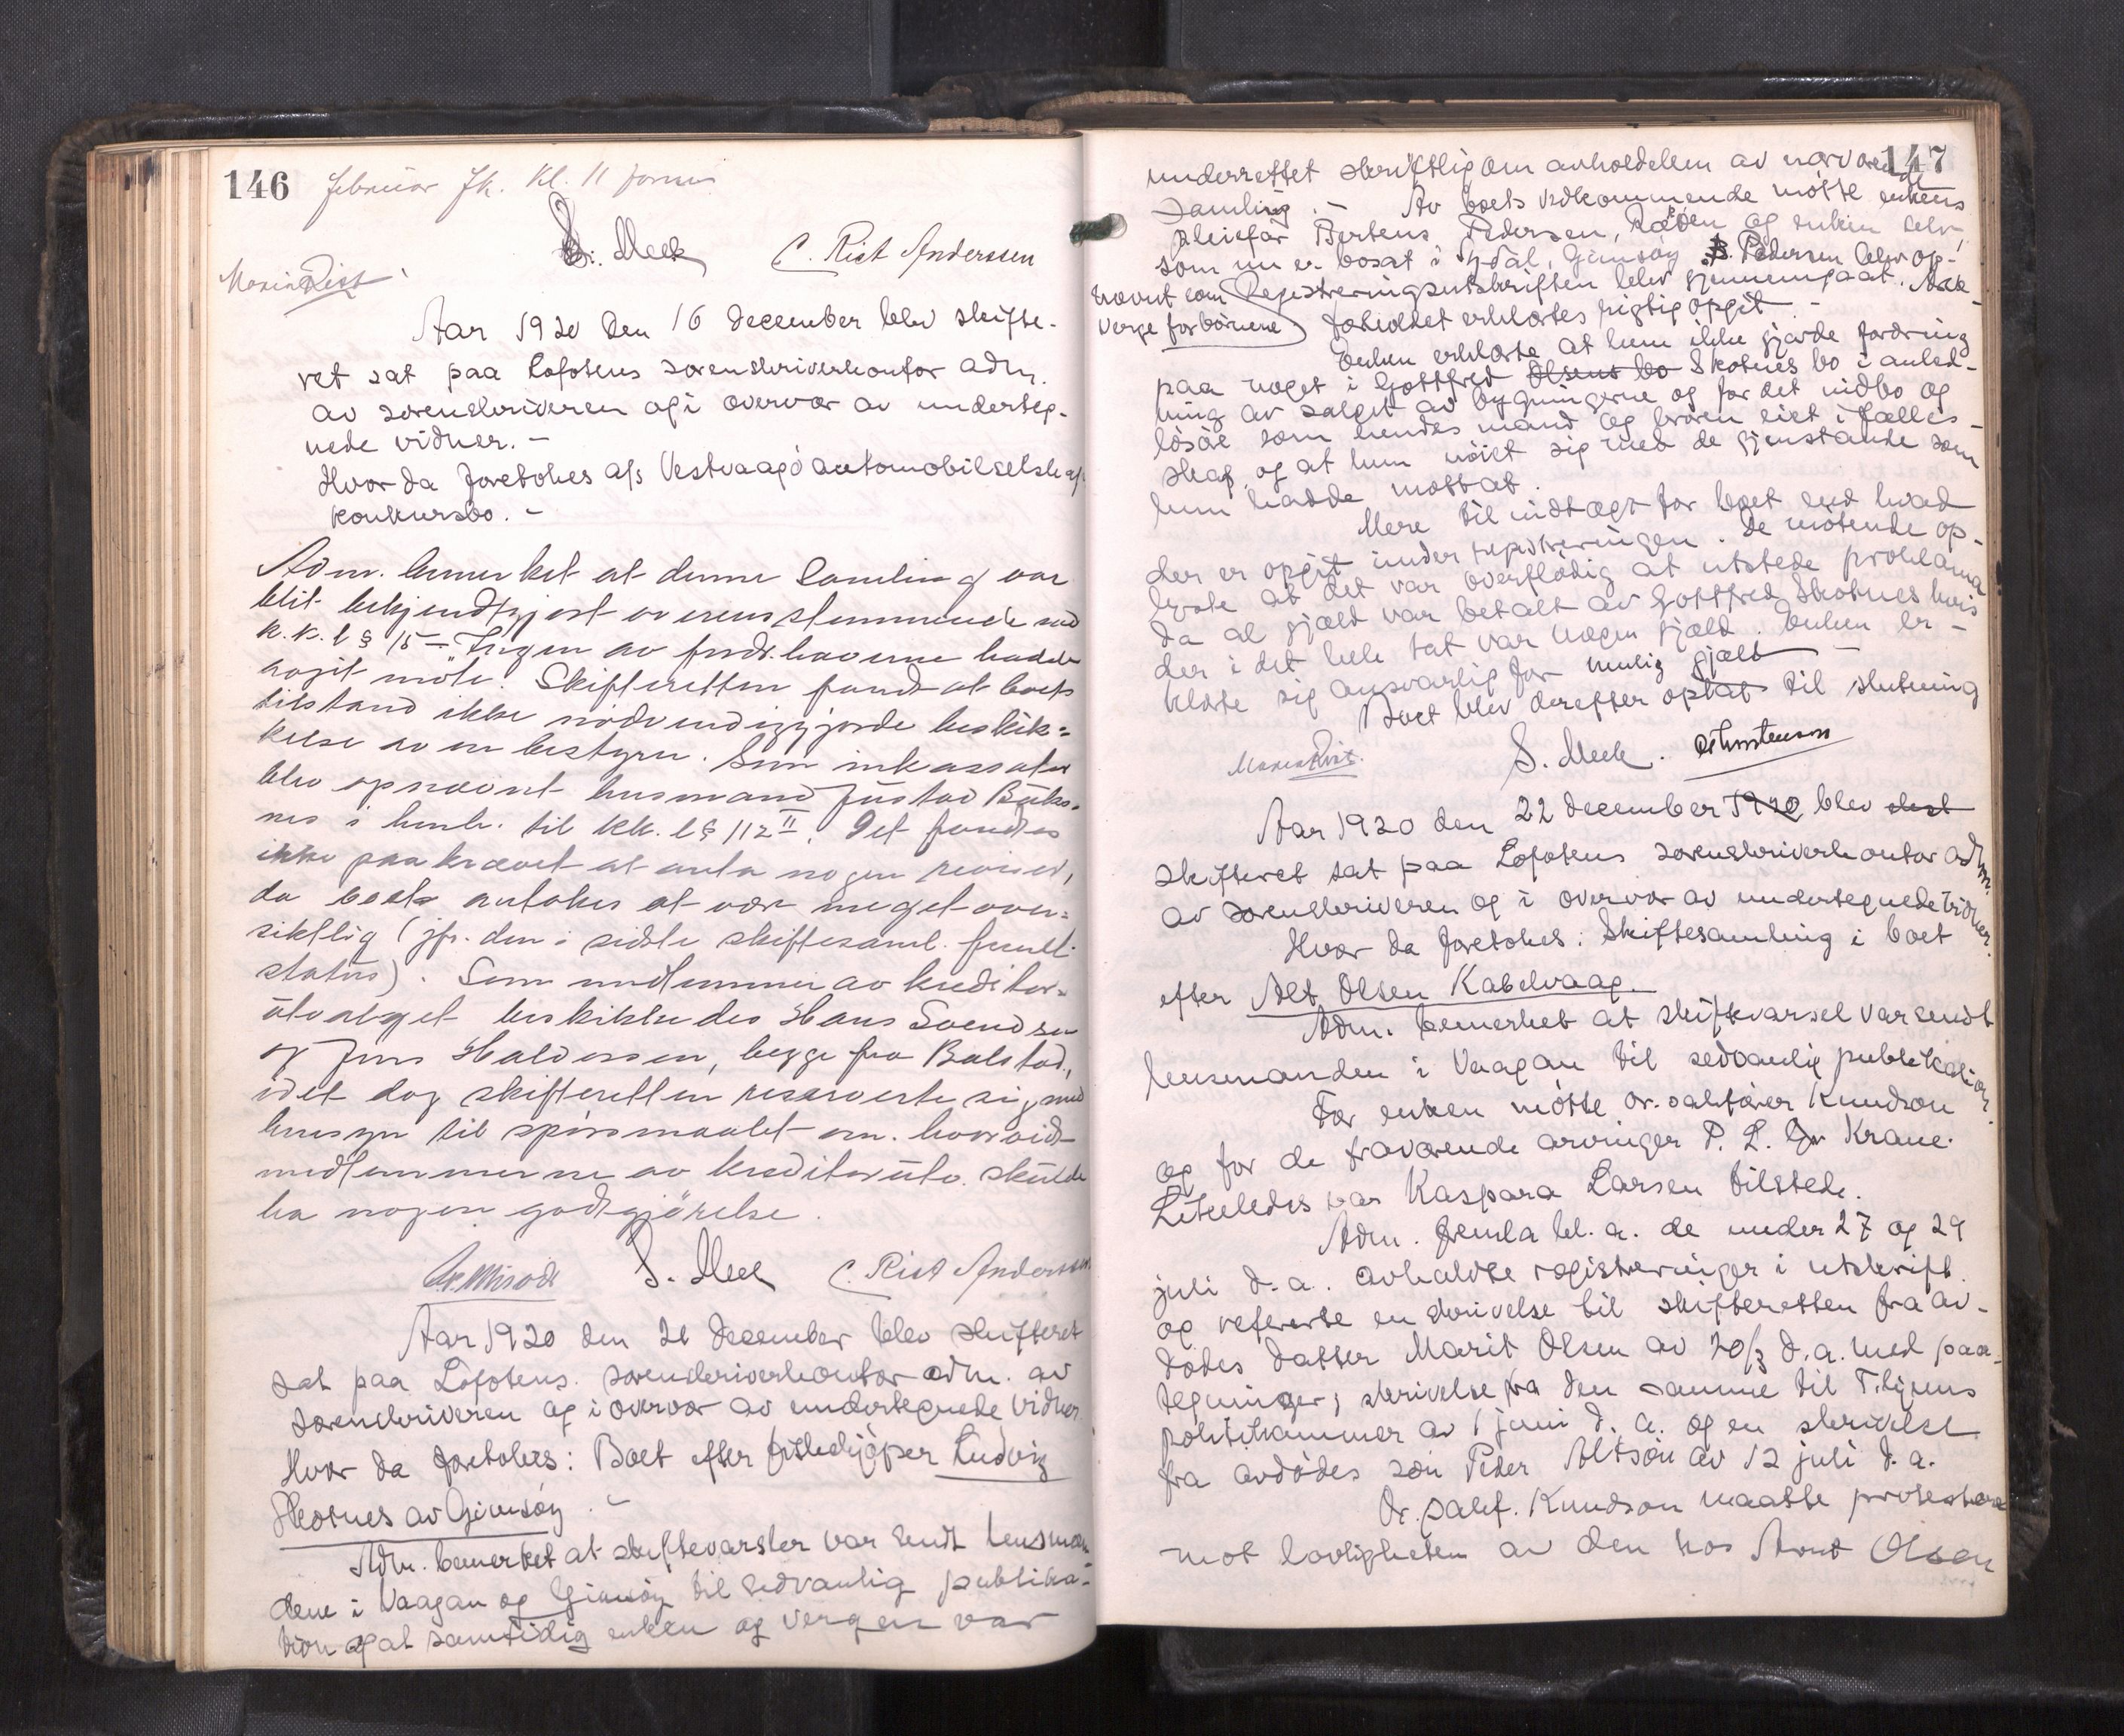 146 februar fk. kl. 11 form
S. Meek C. Rist Anderssen
Maria Rist
Aar 1920 den 16 december blev skifte-
ret sat paa Lofotens sorenskriverkontor adm.
av sorenskriveren og i overvær av underteg-
nede vidner. –
Hvor da foretokes a/s Vestvaagö automobilselskaps
konkursbo. –
Adm. bemerket at denne samling var
blit bekjendtgjort overensstemmende med
k.k.l § 15 – Ingen av fordr.haverne hadde
avgit möte. Skifteretten fandt at boets
tilstand ikke nödvendiggjorde beskik=
kelse av en bestyrer. Som inkassator
blev opnævnt husmand Justad Buks-
nes i henh. til kk.l § 112 II. Det fandtes
ikke paakrævet at anta nogen revisor,
da boets antokes at vær meget over=
siktlig (jfr. den i sidste skiftesaml. freml.
status). Som medlemmer av kreditor=
utvalget beskikkedes Hans Svendsen
og Jens Haldorsen, begge fra Balstad,
idet dog skifteretten reserverte sig med
hensyn til spörsmaalet om hvorvidt
medlemmerne av kreditorutv. skulde
ha nogen godtgjörelse.
S. Meek C. Rist Anderssen
Aar 1920 den 21 december blev skifteret
sat paa Lofotens sorenskriverkontor adm. av
sorenskriveren og i overvær av undertegnede vidner
Hvor da foretokes: Boet efter fiskekjöper Ludvig
Skotnes av Gimsöy. –
Adm. bemerket at skiftevarsler var sendt lensmæn-
dene i Vaagan og Gimsöy til sedvanlig publika-
tion og at samtidig enken og vergen var
147
underrettet skriftlig om avholdelsen av nærværende
samling. – Av boets vedkommende mötte enkens
pleiefar Bertens Pedersen, og enken selv,
som nu er bosat i Sydal, Gimsöy B. Pedersen blev op-
nævnt som Registreringsutskriften blev gjennemgaat. Ak-
verge for börnene tivividet erklærtes rigtig opgit –
Enken erklærte at hun ikke gjorde fordring
paa noget i Gottfred Olsens bo Skotnes bo i anled-
ning av salget av bygningerne og for det indbo og
lösöre som hendes mand og broren eiet i fælles-
skap, og at hun nöiet sig med de gjenstande som
hun hadde mottat.
Mere til indtægt for boet end hvad
der er opgit under registreringen. De mötende op-
lyste at det var overflödig at utstede proklama
da al gjæld var betalt av Gottfred Skotnes hvis
der i det hele tat var nogen gjæld. Enken er-
klærte sig ansvarlig for mulig gjæld –
Boet blev derefter optat til slutning
Maria Rist. S. Meek.
Aar 1920 den 22 december 1920 blev
skifteret sat paa Lofotens sorenskriverkontor adm.
av sorenskriveren og i overvær av undertegnede vidner.
Hvor da foretokes: Skiftesamling i boet
efter Alt Olsen Kabelvaag.
Adm. bemerket at skiftevarsel var sendt
lensmanden i Vaagan til sedvanlig publikation.
For enken mötte or. sakförer Knudson
og for de fraværende arvinger P. L. Krane.
Likeledes var Kaspara Larsen tilstede.
Adm. fremla bl. a. de under 27 og 29
juli d. a. avholdte registreringer i utskrift
og refererte en skrivelse til skifteretten fra av-
dödes datter Marit Olsen av 20/3 d. a. med paa-
tegninger; skrivelse fra den samme til T.hjems
politikammer av 1 juni d. a. og en skrivelse
fra avdödes sön Peder Altsön av 12 juli d. a.
Or. sakf. Knudson maatte protestere
mot lovligheten av den hos Arnt Olsen